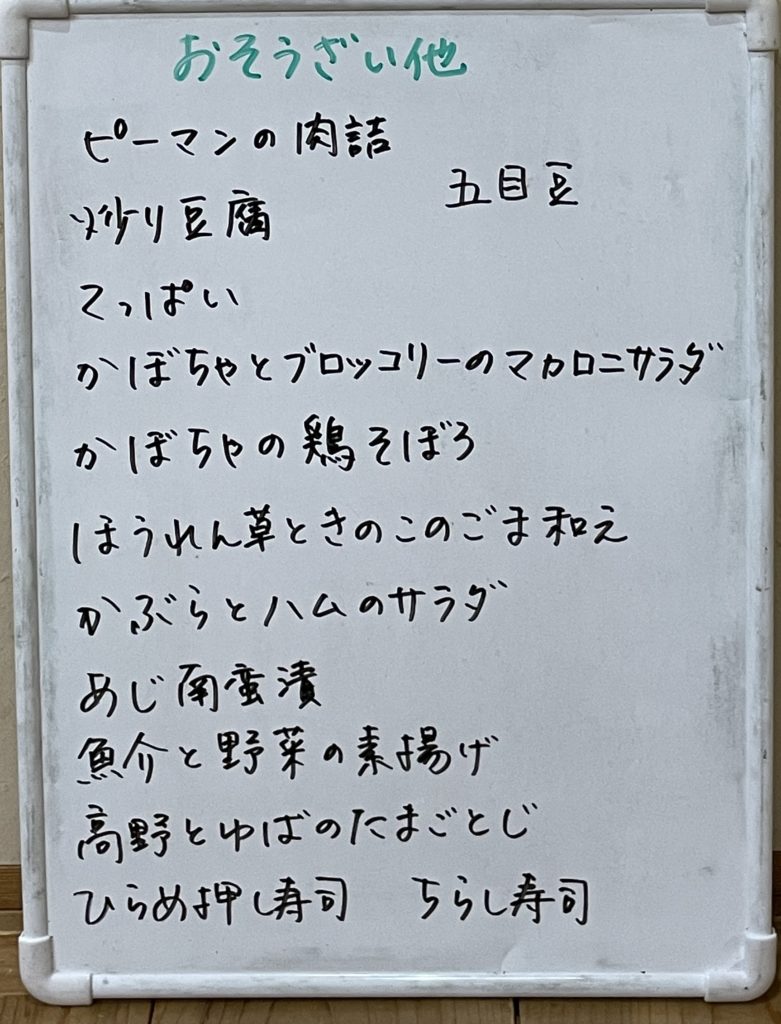 おそうざい他
ピーマンの肉詰
五目豆
炒り豆腐
てっぱい
かぼちゃとブロッコリーのマカロニサラダ
かぼちゃの鶏そぼろ
ほうれん草ときのこのごま和え
かぶらとハムのサラダ
あじ南蛮漬
魚介と野菜の素揚げ
高野とゆばのたまごとじ
ひらめ押し寿司　ちらし寿司